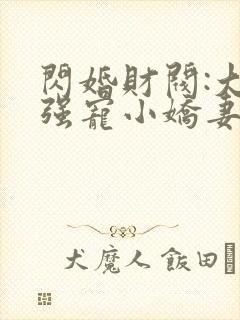 閃婚財閥:大
强寵小嬌妻
犬魔人飯田